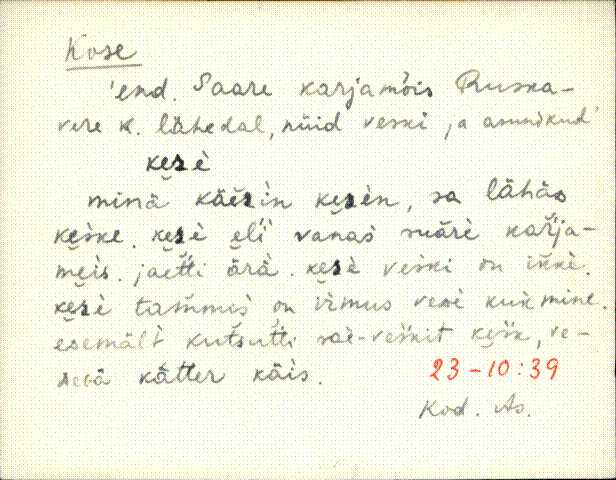 Kose
'end. Saare karjamõis Ruska-
vere k. lähedal, nüid veski ja asunikud'
kesè
minä käësìn kesèn, sa lähäs
keske. kesè eli vanas suārè kaŕja-
meis. jaetti ärä. kesè veski on ikkè.
kesè tammus on irmus vesè kuk mine.
esemält kutsutti saè-veskit kesk, ve-
sevä kätter käis.
23-10:39
Kod. As.